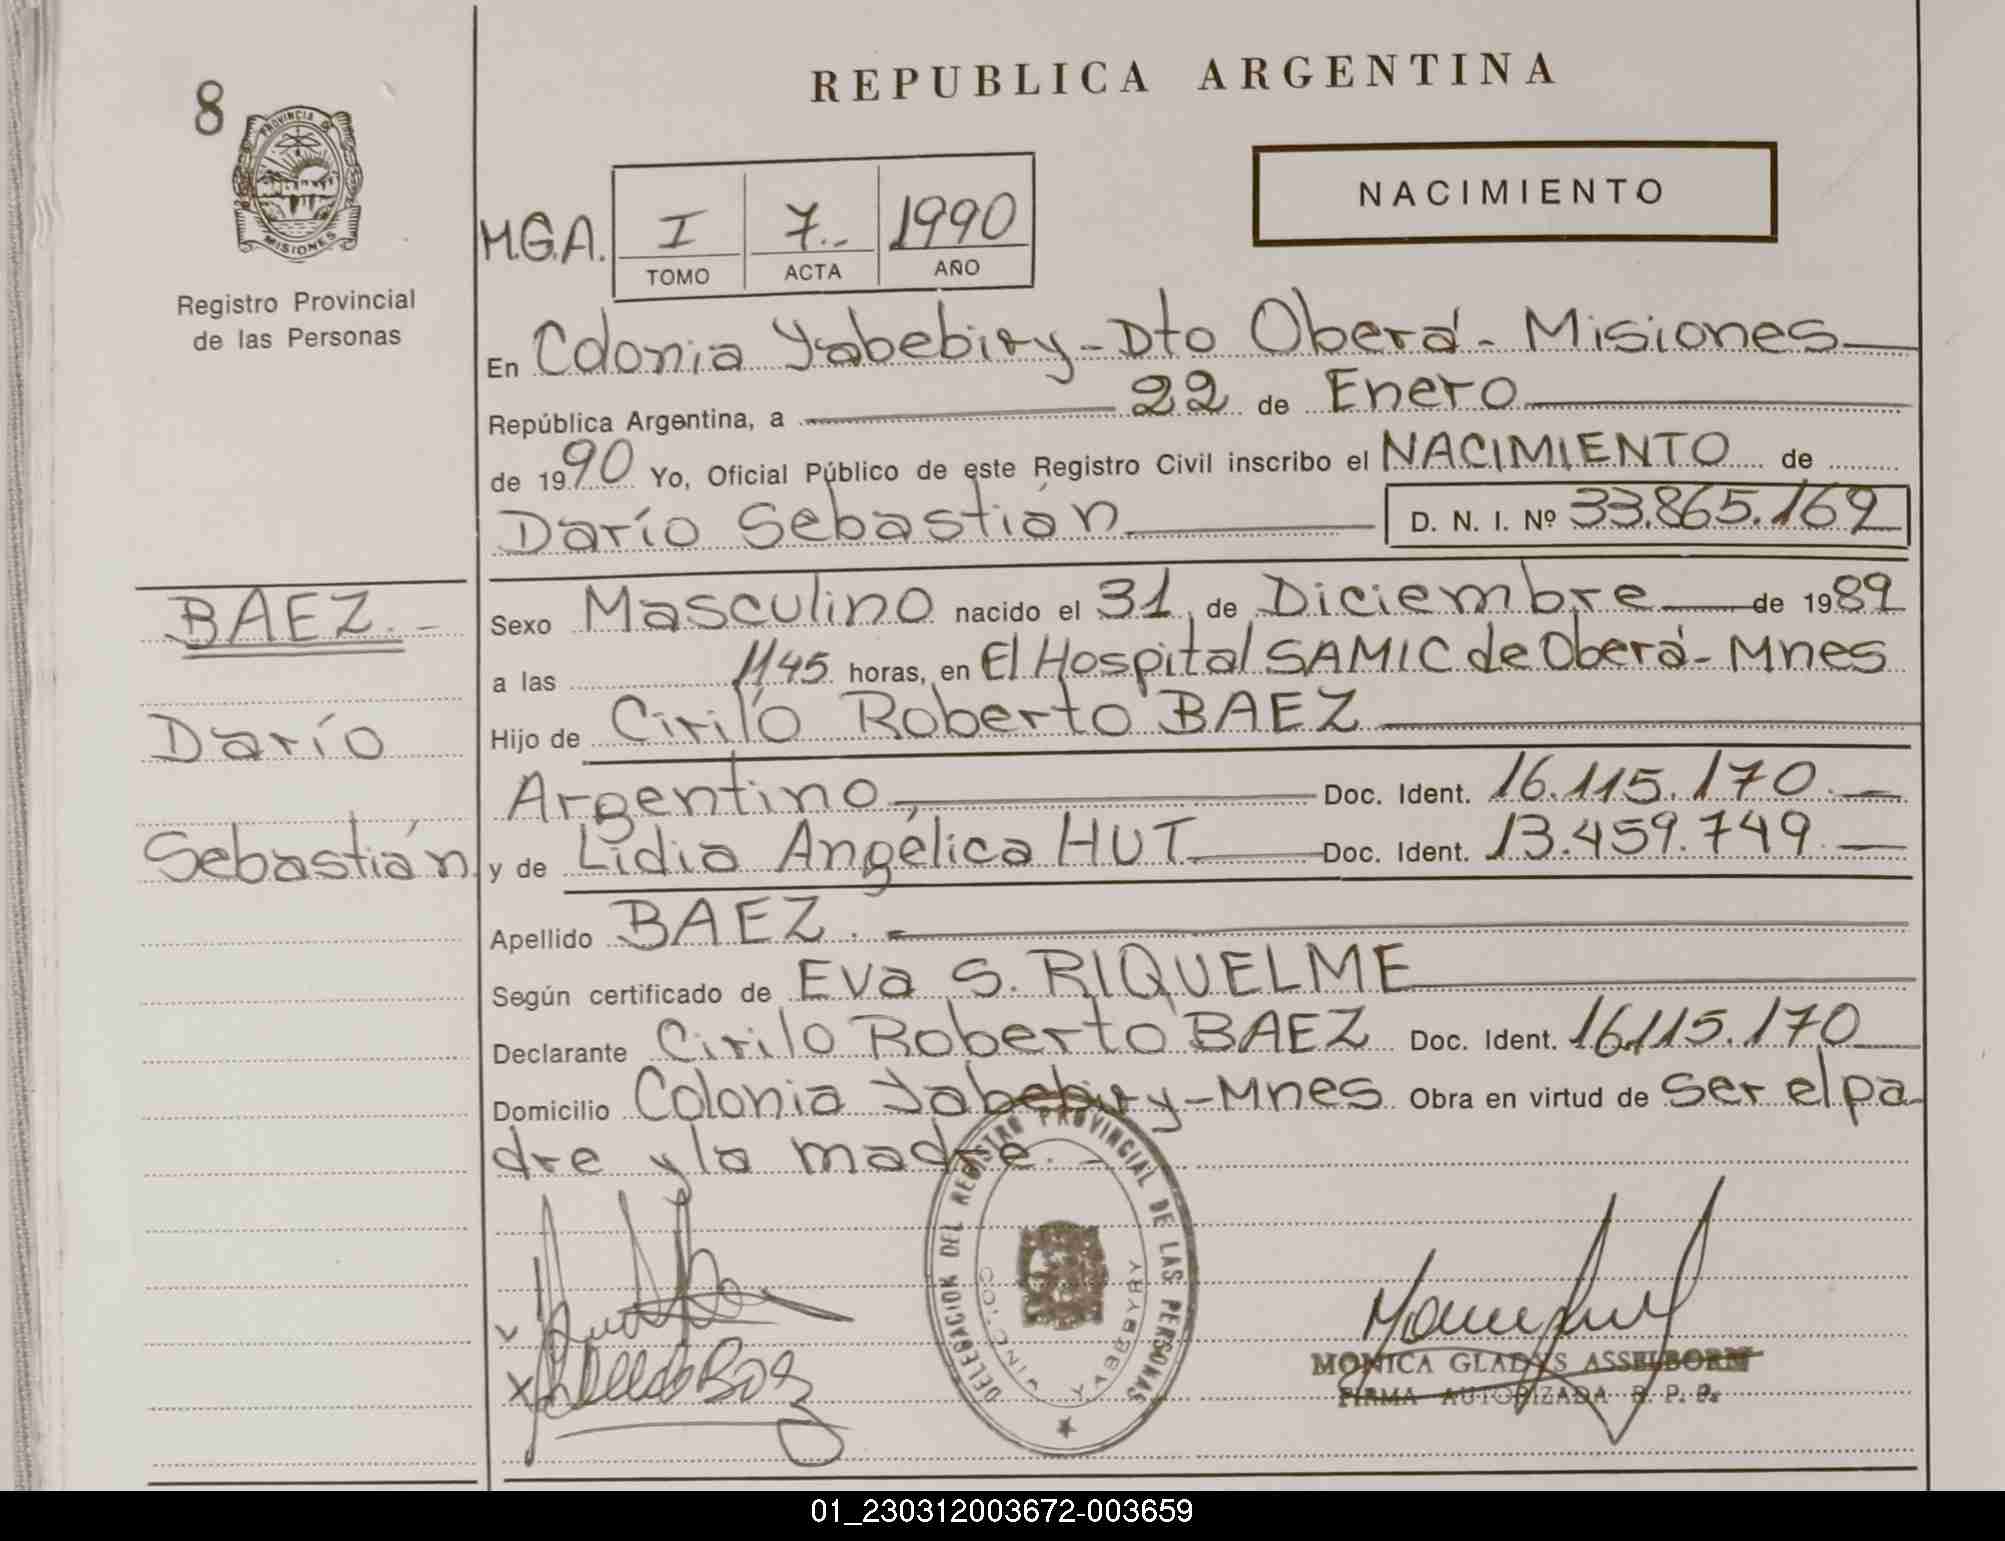 8
PROVINCIA DE
MISIONES
Registro Provincial
de las Personas
BAEZ.-
Darío
Sebastián
REPUBLICA ARGENTINA
NACIMIENTO
M.G.A. I 7.- 1990
TOMO ACTA AÑO
En Colonia Yabebiry - Dto Oberá - Misiones
República Argentina, a 22 de Enero
de 1990 Yo, Oficial Público de este Registro Civil inscribo el NACIMIENTO de
Darío Sebastián D. N. I. Nº 33.865.169
Sexo Masculino nacido el 31 de Diciembre de 1989
a las 1145 horas, en El Hospital SAMIC de Oberá - Mnes
Hijo de Cirilo Roberto BAEZ
Argentino, Doc. Ident. 16.115.170.-
y de Lidia Angélica HUT Doc. Ident. 13.459.749.-
Apellido BAEZ.-
Según certificado de Eva S. RIQUELME
Declarante Cirilo Roberto BAEZ Doc. Ident. 16.115.170
Domicilio Colonia Yabebiry - Mnes Obra en virtud de ser el pa-
dre y la madre.-
DELEGACION DEL REGISTRO PROVINCIAL DE LAS PERSONAS
COLONIA YABEBYRY
MONICA GLADYS ASSELBORN
FIRMA AUTORIZADA R. P. P.
01_230312003672-003659